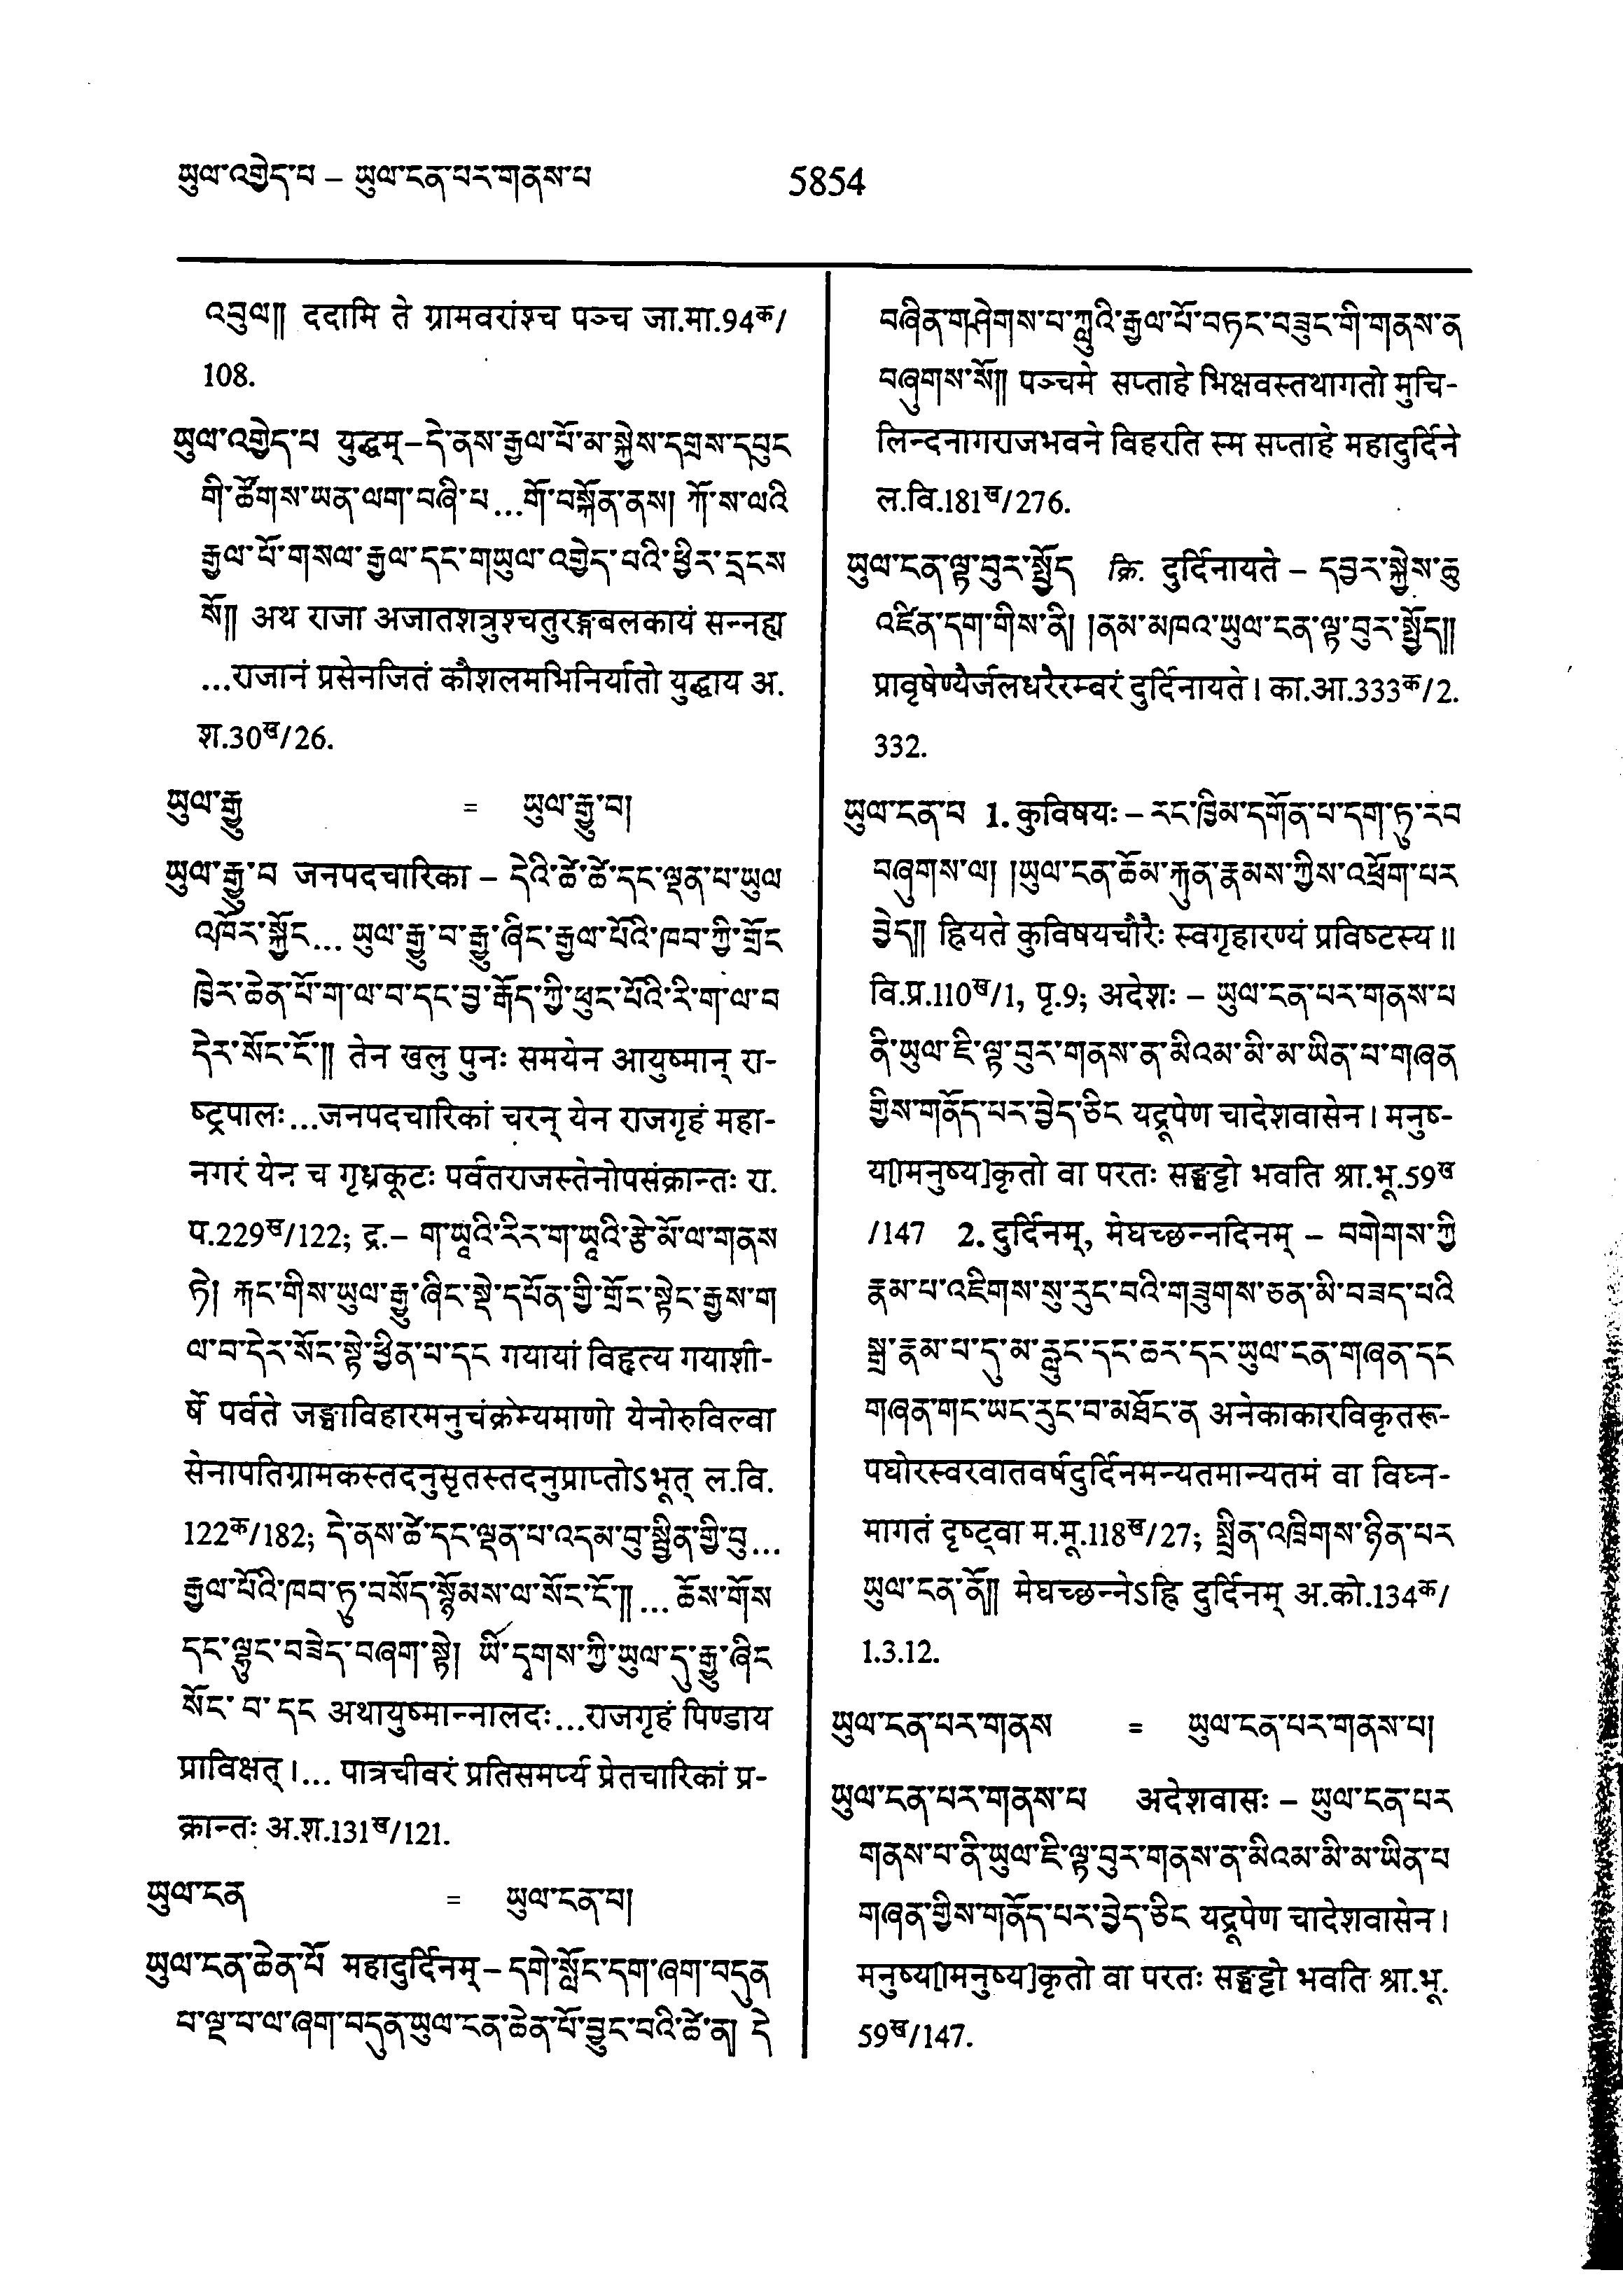 ཡུལ་འགྱེད་པ – ཡུལ་ངན་པར་གནས་པ
5854
འབུལ༎ ददामि ते ग्रामवरांश्च पञ्च जा.मा.94क/
108.
ཡུལ་འགྱེད་པ युद्धम् – དེ་ནས་རྒྱལ་པོ་མ་སྐྱེས་དགྲས་དཔུང
གི་ཚོགས་ཡན་ལག་བཞི་པ...གོ་བསྐོན་ནས། ཀོ་ས་ལའི
རྒྱལ་པོ་གསལ་རྒྱལ་དང་གཡུལ་འགྱེད་པའི་ཕྱིར་དྲངས
སོ༎ अथ राजा अजातशत्रुश्चतुरङ्गबलकायं सन्नह्य
...राजानं प्रसेनजितं कौशलमभिनिर्यातो युद्धाय अ.
श.30ख/26.
ཡུལ་རྒྱུ = ཡུལ་རྒྱུ་བ།
ཡུལ་རྒྱུ་བ जनपदचारिका – དེའི་ཚེ་ཚེ་དང་ལྡན་པ་ཡུལ
འཁོར་སྐྱོང... ཡུལ་རྒྱུ་བ་རྒྱུ་ཞིང་རྒྱལ་པོའི་ཁབ་ཀྱི་གྲོང
ཁྱེར་ཆེན་པོ་ག་ལ་བ་དང་བྱ་རྒོད་ཀྱི་ཕུང་པོའི་རི་ག་ལ་བ
དེར་སོང་ངོ་༎ तेन खलु पुनः समयेन आयुष्मान् रा-
ष्ट्रपालः...जनपदचारिकां चरन् येन राजगृहं महा-
नगरं येन च गृध्रकूटः पर्वतराजस्तेनोपसंक्रान्तः रा.
प.229ख/122; द्र.– ག་ཡཱའི་རིར་ག་ཡཱའི་རྩེ་མོ་ལ་གནས
ཏེ། རྐང་གིས་ཡུལ་རྒྱུ་ཞིང་སྡེ་དཔོན་གྱི་གྲོང་སྟེང་རྒྱས་ག
ལ་བ་དེར་སོང་སྟེ་ཕྱིན་པ་དང गयायां विहृत्य गयाशी-
र्षे पर्वते जङ्घाविहारमनुचंक्रम्यमाणो येनोरुविल्वा
सेनापतिग्रामकस्तदनुसृतस्तदनुप्राप्तोऽभूत् ल.वि.
122क/182; དེ་ནས་ཚེ་དང་ལྡན་པ་འདམ་བུ་སྦྱིན་གྱི་བུ...
རྒྱལ་པོའི་ཁབ་ཏུ་བསོད་སྙོམས་ལ་སོང་ངོ་༎ ... ཆོས་གོས
དང་ལྷུང་བཟེད་བཞག་སྟེ། ཡི་དྭགས་ཀྱི་ཡུལ་དུ་རྒྱུ་ཞིང
སོང་བ་དང अथायुष्मान्नालदः...राजगृहं पिण्डाय
प्राविक्षत् ।... पात्रचीवरं प्रतिसमर्प्य प्रेतचारिकां प्र-
क्रान्तः अ.श.131ख/121.
ཡུལ་ངན = ཡུལ་ངན་པ།
ཡུལ་ངན་ཆེན་པོ महादुर्दिनम् – དགེ་སློང་དག་ཞག་བདུན
པ་ལྔ་པ་ལ་ཞག་བདུན་ཡུལ་ངན་ཆེན་པོ་བྱུང་བའི་ཚེ་ན། དེ
བཞིན་གཤེགས་པ་ཀླུའི་རྒྱལ་པོ་བཏང་བཟུང་གི་གནས་ན
བཞུགས་སོ༎ पञ्चमे सप्ताहे भिक्षवस्तथागतो मुचि-
लिन्दनागराजभवने विहरति स्म सप्ताहे महादुर्दिने
ल.वि.181ख/276.
ཡུལ་ངན་ལྟ་བུར་སྤྱོད क्रि. दुर्दिनायते – དབྱར་སྐྱེས་ཆུ
འཛིན་དག་གིས་ནི། །ནམ་མཁའ་ཡུལ་ངན་ལྟ་བུར་སྤྱོད༎
प्रावृषेण्यैर्जलधरैरम्बरं दुर्दिनायते । का.आ.333क/2.
332.
ཡུལ་ངན་པ 1. कुविषयः – རང་ཁྱིམ་དགོན་པ་དག་ཏུ་རབ
བཞུགས་ལ། །ཡུལ་ངན་ཆོམ་རྐུན་རྣམས་ཀྱིས་འཕྲོག་པར
བྱེད༎ ह्रियते कुविषयचौरैः स्वगृहारण्यं प्रविष्टस्य ॥
वि.प्र.110ख/1, पृ.9; अदेशः – ཡུལ་ངན་པར་གནས་པ
ནི་ཡུལ་ཇི་ལྟ་བུར་གནས་ན་མིའམ་མི་མ་ཡིན་པ་གཞན
གྱིས་གནོད་པར་བྱེད་ཅིང यद्रूपेण चादेशवासेन । मनुष-
य[ामनुष्य]कृतो वा परतः सङ्घट्टो भवति श्रा.भू.59ख
/147 2. दुर्दिनम्, मेघच्छन्नदिनम् – བགེགས་ཀྱི
རྣམ་པ་འཇིགས་སུ་རུང་བའི་གཟུགས་ཅན་མི་བཟད་པའི
སྒྲ་རྣམ་པ་དུ་མ་རླུང་དང་ཆར་དང་ཡུལ་ངན་གཞན་དང
གཞན་གང་ཡང་རུང་བ་མཐོང་ན अनेकाकारविकृतरू-
पघोरस्वरवातवर्षदुर्दिनमन्यतमान्यतमं वा विघ्न-
मागतं दृष्ट्वा म.मू.118ख/27; སྤྲིན་འཁྲིགས་ཉིན་པར
ཡུལ་ངན་ནོ༎ मेघच्छन्नेऽह्नि दुर्दिनम् अ.को.134क/
1.3.12.
ཡུལ་ངན་པར་གནས = ཡུལ་ངན་པར་གནས་པ།
ཡུལ་ངན་པར་གནས་པ अदेशवासः – ཡུལ་ངན་པར
གནས་པ་ནི་ཡུལ་ཇི་ལྟ་བུར་གནས་ན་མིའམ་མི་མ་ཡིན་པ
གཞན་གྱིས་གནོད་པར་བྱེད་ཅིང यद्रूपेण चादेशवासेन ।
मनुष्य[ामनुष्य]कृतो वा परतः सङ्घट्टो भवति श्रा.भू.
59ख/147.